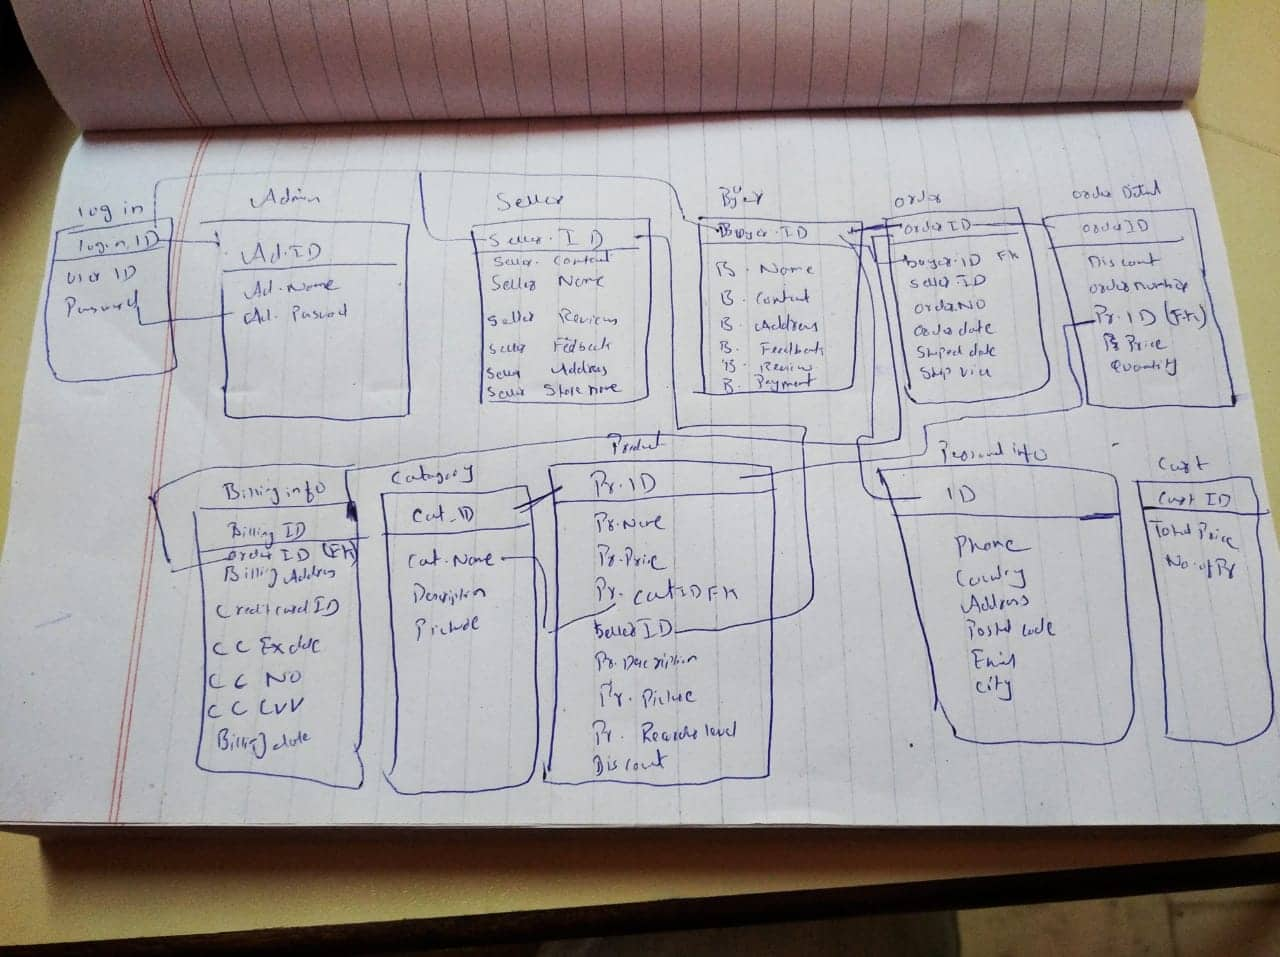 log in
login ID
User ID
Password
Admin
Ad.ID
Ad. Name
Ad. Pasword
Seller
Seller. ID
Seller. Contact
Seller Name
Seller Reviews
Seller Fedback
Seller Address
Seller Store name
Buyer
Buyer. ID
B. Name
B. Contact
B. Address
B. Feedback
B. Review
B. Payment
order
order ID
buyer ID FK
Seller ID
Order NO
Order date
Shiped date
Ship
Order Detail
order ID
Discount
order number
Pr. ID (FK)
Price
Quantity
Billing info
Billing ID
order ID (FK)
Billing Address
Credit card ID
CC Ex date
CC NO
CC CVV
Billing date
Category
Cat_ID
Cat. Name
Description
Picture
Product
Pr. ID
Pr. Name
Pr. Price
Pr. Cat ID FK
Seller ID
Pr. Description
Pr. Picture
Pr. level
Discount
Personal info
ID
Phone
Country
Address
Postal code
Email
City
Cart
Cart ID
Total Price
No. of Pr